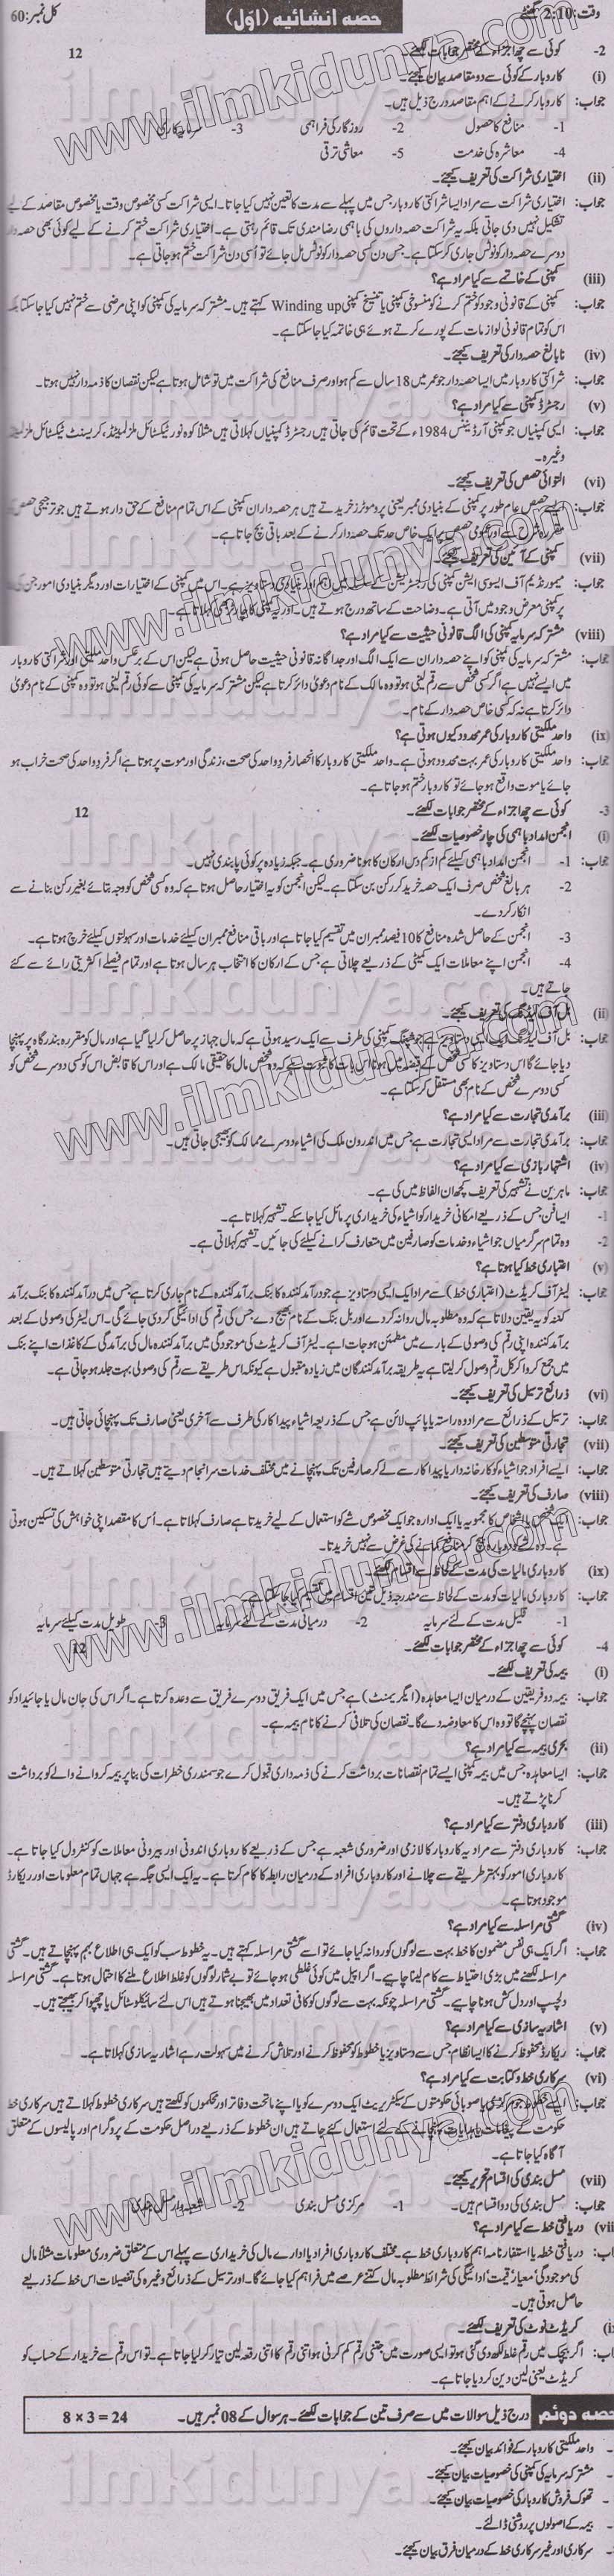 وقت: 2:10 گھنٹے حصہ انشائیہ (اوّل) کل نمبر: 60
2- کوئی سے چھ اجزاء کے مختصر جوابات لکھئے۔ 12
(i) کاروبار کے کوئی سے دو مقاصد بیان کیجئے۔
جواب: کاروبار کرنے کے اہم مقاصد درج ذیل ہیں۔
1- منافع کا حصول 2- روزگار کی فراہمی 3- سرمایہ کاری
4- معاشرہ کی خدمت 5- معاشی ترقی
(ii) اختیاری شراکت کی تعریف کیجئے۔
جواب: اختیاری شراکت سے مراد ایسا شراکتی کاروبار جس میں پہلے سے مدت کا تعین نہیں کیا جاتا۔ ایسی شراکت کسی مخصوص وقت یا مخصوص مقاصد کے لیے
تشکیل نہیں دی جاتی بلکہ یہ شراکت حصہ داروں کی باہمی رضامندی تک قائم رہتی ہے۔ اختیاری شراکت ختم کرنے کے لیے کوئی بھی حصہ دار
دوسرے حصہ دار کو نوٹس جاری کر سکتا ہے۔ جس دن کسی حصہ دار کو نوٹس مل جائے تو اُسی دن شراکت ختم ہو جاتی ہے۔
(iii) کمپنی کے خاتمے سے کیا مراد ہے؟
جواب: کمپنی کے قانونی وجود کو ختم کرنے کو منسوخی کمپنی یا تنسیخ کمپنی Winding up کہتے ہیں۔ مشترکہ سرمایہ کی کمپنی کو اپنی مرضی سے ختم نہیں کیا جا سکتا بلکہ
اس کو تمام قانونی لوازمات کے پورے کرتے ہوئے ہی خاتمہ کیا جا سکتا ہے۔
(iv) نابالغ حصہ دار کی تعریف کیجئے۔
جواب: شراکتی کاروبار میں ایسا حصہ دار جو عمر میں 18 سال سے کم ہو اور صرف منافع کی شراکت میں تو شامل ہوتا ہے لیکن نقصان کا ذمہ دار نہیں ہوتا۔
(v) رجسٹرڈ کمپنی سے کیا مراد ہے؟
جواب: ایسی کمپنیاں جو کمپنی آرڈیننس 1984ء کے تحت قائم کی جاتی ہیں رجسٹرڈ کمپنیاں کہلاتی ہیں مثلاً کوہ نور ٹیکسٹائل ملز لمیٹڈ، کریسنٹ ٹیکسٹائل ملز لمیٹڈ
وغیرہ۔
(vi) التوائی حصص کی تعریف کیجئے۔
جواب: ایسے حصص عام طور پر کمپنی کے بنیادی ممبر یعنی پروموٹرز خریدتے ہیں ہر حصہ داران کمپنی کے اس تمام منافع کے حق دار ہوتے ہیں جو ترجیحی حصص کو
مقررہ شرح سے اور عمومی حصص پر ایک خاص حد تک حصہ دار کرنے کے بعد باقی بچ جاتا ہے۔
(vii) کمپنی کے آئین کی تعریف کیجئے۔
جواب: میمورنڈیم آف ایسوسی ایشن کمپنی کی رجسٹریشن کے سلسلہ میں اہم اور بنیادی دستاویز ہے۔ اس میں کمپنی کے اختیارات اور دیگر بنیادی امور جن کی بنا
پر کمپنی معرض وجود میں آتی ہے۔ وضاحت کے ساتھ درج ہوتے ہیں۔ اور یہ کمپنی کا چارٹر بھی کہلاتا ہے۔
(viii) مشترکہ سرمایہ کی کمپنی کی الگ قانونی حیثیت سے کیا مراد ہے؟
جواب: مشترکہ سرمایہ کی کمپنی کو اپنے حصہ داران سے ایک الگ اور جداگانہ قانونی حیثیت حاصل ہوتی ہے لیکن اس کے برعکس واحد ملکیتی اور شراکتی کاروبار
میں ایسے نہیں ہے اگر کسی شخص سے رقم لینی ہو تو وہ مالک کے نام دعویٰ دائر کرتا ہے لیکن مشترکہ سرمایہ کی کمپنی سے کوئی رقم لینی ہو تو وہ کمپنی کے نام دعویٰ
دائر کرتا ہے نہ کہ کسی خاص حصہ دار کے نام۔
(ix) واحد ملکیتی کاروبار کی عمر محدود کیوں ہوتی ہے؟
جواب: واحد ملکیتی کاروبار کی عمر بہت محدود ہوتی ہے۔ واحد ملکیتی کاروبار کا انحصار فرد واحد کی صحت، زندگی اور موت پر ہوتا ہے اگر فرد واحد کی صحت خراب ہو
جائے یا موت واقع ہو جائے تو کاروبار ختم ہو جاتا ہے۔
3- کوئی سے چھ اجزاء کے مختصر جوابات لکھئے۔ 12
(i) انجمن امداد باہمی کی چار خصوصیات لکھئے۔
جواب: 1- انجمن امداد باہمی کیلئے کم از کم دس ارکان کا ہونا ضروری ہے۔ جبکہ زیادہ پر کوئی پابندی نہیں۔
2- ہر بالغ شخص صرف ایک حصہ خرید کر رکن بن سکتا ہے۔ لیکن انجمن کو یہ اختیار حاصل ہوتا ہے کہ وہ کسی شخص کو وجہ بتائے بغیر رکن بنانے سے
انکار کر دے۔
3- انجمن کے حاصل شدہ منافع کا 10 فیصد ممبران میں تقسیم کیا جاتا ہے اور باقی منافع ممبران کیلئے خدمات اور سہولتوں کیلئے خرچ ہوتا ہے۔
4- انجمن اپنے معاملات ایک کمیٹی کے ذریعے چلاتی ہے جس کے ارکان کا انتخاب ہر سال ہوتا ہے اور تمام فیصلے اکثریتی رائے سے کئے
جاتے ہیں۔
(ii) بل آف لیڈنگ کی تعریف کیجئے۔
جواب: بل آف لیڈنگ ایک ایسی دستاویز ہے جو شپنگ کمپنی کی طرف سے ایک رسید ہوتی ہے کہ مال جہاز پر حاصل کر لیا گیا ہے اور مال کو مقررہ بندرگاہ پر پہنچا
دیا جائے گا اس دستاویز کا کسی شخص کے قبضہ میں ہونا اس بات کا ثبوت ہے کہ وہ شخص مال کا حقیقی مالک ہے اور اس کا قابض اس کو کسی دوسرے شخص کو
کسی دوسرے شخص کے نام بھی منتقل کر سکتا ہے۔
(iii) برآمدی تجارت سے کیا مراد ہے؟
جواب: برآمدی تجارت سے مراد ایسی تجارت ہے جس میں اندرون ملک کی اشیاء دوسرے ممالک کو بھیجی جاتی ہیں۔
(iv) اشتہار بازی سے کیا مراد ہے؟
جواب: ماہرین نے تشہیر کی تعریف کچھ ان الفاظ میں کی ہے۔
1- ایسا فن جس کے ذریعے امکانی خریدار کو اشیاء کی خریداری پر مائل کیا جا سکے۔ تشہیر کہلاتا ہے۔
2- وہ تمام سرگرمیاں جو اشیاء و خدمات کو صارفین میں متعارف کرانے کیلئے کی جائیں۔ تشہیر کہلاتی ہے۔
(v) اعتباری خط کیا ہوتا ہے؟
جواب: لیٹر آف کریڈٹ (اعتباری خط) سے مراد ایک ایسی دستاویز ہے جو درآمد کنندہ کا بنک برآمد کنندہ کے نام جاری کرتا ہے جس میں درآمد کنندہ کا بنک برآمد
کنندہ کو یقین دلاتا ہے کہ وہ مطلوبہ مال روانہ کر دے اور بل بنک کے نام بھیج دے جس کی رقم کی ادائیگی کر دی جائے گی۔ اس لیٹر کی وصولی کے بعد
برآمد کنندہ اپنی رقم کی وصولی کے بارے میں مطمئن ہو جاتا ہے۔ لیٹر آف کریڈٹ کی موجودگی میں برآمد کنندہ مال کی برآمدگی کے کاغذات اپنے بنک
میں جمع کروا کر کل رقم وصول کر لیتا ہے یہ طریقہ برآمد کنندگان میں زیادہ مقبول ہے کیونکہ اس طریقے سے رقم کی وصولی بہت جلد ہو جاتی ہے۔
(vi) ذرائع ترسیل کی تعریف کیجئے۔
جواب: ترسیل کے ذرائع سے مراد وہ راستہ یا پائپ لائن ہے جس کے ذریعہ اشیاء پیدا کار کی طرف سے آخری یعنی صارف تک پہنچائی جاتی ہیں۔
(vii) تجارتی متوسطین کی تعریف کیجئے۔
جواب: ایسے افراد جو اشیاء کو کارخانہ دار یا پیدا کار سے لے کر صارفین تک پہنچانے میں مختلف خدمات سر انجام دیتے ہیں تجارتی متوسطین کہلاتے ہیں۔
(viii) صارف کی تعریف کیجئے۔
جواب: ایسا شخص یا اشخاص کا مجموعہ یا ایک ادارہ جو ایک مخصوص شے کو استعمال کے لیے خریدتا ہے صارف کہلاتا ہے۔ اُس کا مقصد اپنی خواہش کی تسکین ہوتی
ہے۔ وہ شے کو دوبارہ بیچ کر منافع کمانے کی غرض سے نہیں خریدتا۔
(ix) کاروباری مالیات کی مدت کے لحاظ سے اقسام لکھئے۔
جواب: کاروباری مالیات کو مدت کے لحاظ سے مندرجہ ذیل تین اقسام میں تقسیم کیا جا سکتا ہے۔
1- قلیل مدت کے لئے سرمایہ 2- درمیانی مدت کے لئے سرمایہ 3- طویل مدت کیلئے سرمایہ
4- کوئی سے چھ اجزاء کے مختصر جوابات لکھئے۔ 12
(i) بیمہ کی تعریف لکھئے۔
جواب: بیمہ دو فریقین کے درمیان ایسا معاہدہ (ایگریمنٹ) ہے جس میں ایک فریق دوسرے فریق سے وعدہ کرتا ہے۔ اگر اس کی جان مال یا جائیداد کو
نقصان پہنچے گا تو وہ اس کا معاوضہ دے گا۔ نقصان کی تلافی کرنے کا نام بیمہ ہے۔
(ii) بحری بیمہ سے کیا مراد ہے؟
جواب: ایسا معاہدہ جس میں بیمہ کمپنی ایسے تمام نقصانات برداشت کرنے کی ذمہ داری قبول کرے جو سمندری خطرات کی بنا پر بیمہ کروانے والے کو برداشت
کرنا پڑتے ہیں۔
(iii) کاروباری دفتر سے کیا مراد ہے؟
جواب: کاروباری دفتر سے مراد یہ کاروبار کا لازمی اور ضروری شعبہ ہے جس کے ذریعے کاروباری اندونی اور بیرونی معاملات کو کنٹرول کیا جاتا ہے۔
کاروباری امور کو بہتر طریقے سے چلانے اور کاروباری افراد کے درمیان رابطہ کا کام کرتا ہے۔ یہ ایک ایسی جگہ ہے جہاں تمام معلومات اور ریکارڈ
موجود ہوتا ہے۔
(iv) گشتی مراسلہ سے کیا مراد ہے؟
جواب: اگر ایک ہی نفس مضمون کا خط بہت سے لوگوں کو روانہ کیا جائے تو اسے گشتی مراسلہ کہتے ہیں۔ یہ خطوط سب کو ایک ہی اطلاع بہم پہنچاتے ہیں۔ گشتی
مراسلہ لکھنے میں بڑی احتیاط سے کام لینا چاہیے۔ اگر اپیل میں کوئی غلطی ہو جائے تو بے شمار لوگوں کو غلط اطلاع ملنے کا احتمال ہوتا ہے۔ گشتی مراسلہ
دلچسپ اور دل کش ہونا چاہیے۔ گشتی مراسلہ چونکہ بہت سے لوگوں کو کافی تعداد میں بھیجنا ہوتے ہیں اس لئے سائیکلو سٹائل یا چھپوا کر بھیجتے ہیں۔
(v) اشاریہ سازی سے کیا مراد ہے؟
جواب: ریکارڈ محفوظ کرنے کا ایسا نظام جس سے دستاویز یا خطوط کو محفوظ کرنے اور تلاش کرنے میں سہولت رہے اشاریہ سازی کہلاتا ہے۔
(vi) سرکاری خط و کتابت سے کیا مراد ہے؟
جواب: ایسے خطوط جو مرکزی یا صوبائی حکومتوں کے سیکرٹریٹ ایک دوسرے کو یا اپنے ماتحت دفاتر اور محکموں کو لکھتے ہیں سرکاری خطوط کہلاتے ہیں سرکاری خط
حکومت کے پیغامات یا ہدایات پہنچانے کے لئے استعمال کئے جاتے ہیں ان خطوط کے ذریعے دراصل حکومت کے پروگرام اور پالیسوں کے متعلق
آگاہ کیا جاتا ہے۔
(vii) مسل بندی کی اقسام تحریر کیجئے۔
جواب: مسل بندی کی دو اقسام ہیں۔ 1- مرکزی مسل بندی 2- شعبہ وار مسل بندی
(viii) دریافتی خط سے کیا مراد ہے؟
جواب: دریافتی خط یا استفسار نامہ اہم کاروباری خط ہے۔ مختلف کاروباری افراد یا ادارے مال کی خریداری سے پہلے اس کے متعلق ضروری معلومات مثلاً مال
کی موجودگی، معیار، قیمت، ادائیگی کی شرائط مطلوبہ مال کتنے عرصے میں فراہم کیا جائے گا۔ اور ترسیل کے ذرائع وغیرہ کی تفصیلات اس خط کے ذریعے
حاصل ہوتی ہیں۔
(ix) کریڈٹ نوٹ کی تعریف لکھئے۔
جواب: اگر بیچک میں رقم غلط لکھ دی گئی ہو تو ایسی صورت میں جتنی رقم کم کرنی ہو اتنی رقم کا اتنی رقعہ لین تیار کر لیا جاتا ہے۔ تو اس رقم سے خریدار کے حساب کو
کریڈٹ یعنی لین دین کر دیا جاتا ہے۔
حصہ دوئم درج ذیل سوالات میں سے صرف تین کے جوابات لکھئے۔ ہر سوال کے 08 نمبر ہیں۔ 8 × 3 = 24
- واحد ملکیتی کاروبار کے فوائد بیان کیجئے۔
- مشترکہ سرمایہ کی کمپنی کی خصوصیات بیان کیجئے۔
- تھوک فروش کاروبار کی خصوصیات بیان کیجئے۔
- بیمہ کے اصولوں پر روشنی ڈالئے۔
- سرکاری اور غیر سرکاری خط کے درمیان فرق بیان کیجئے۔
www.ilmkidunya.com